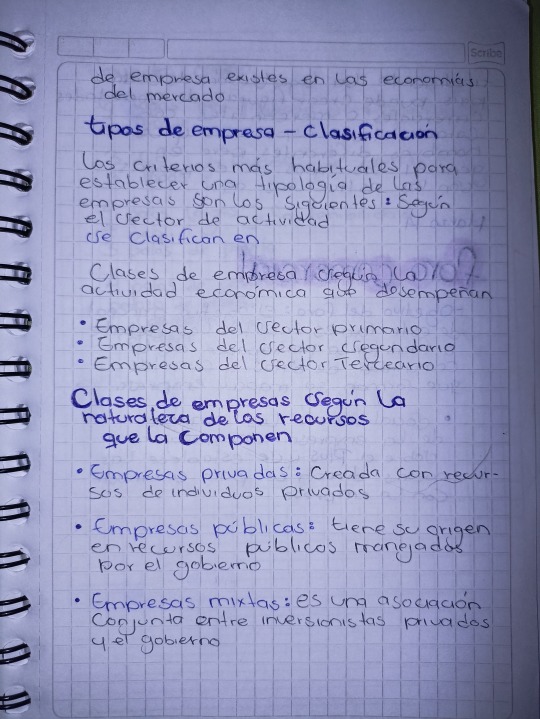 Scribe
de empresa existes en las economías
del mercado
tipos de empresa - Clasificación
Los criterios más habituales para
establecer una tipologia de las
empresas son los siguientes: Según
el sector de actividad
se clasifican en
Clases de empresa según la
actividad económica que desempeñan
• Empresas del sector primario
• Empresas del sector segundario
• Empresas del sector Terceario
Clases de empresas según la
naturaleza de los recursos
que la componen
• Empresas privadas: Creada con recur-
sos de individuos privados
• Empresas públicas: tiene su origen
en recursos públicos manejados
por el gobierno
• Empresas mixtas: es una asociación
conjunta entre inversionistas privados
y el gobierno